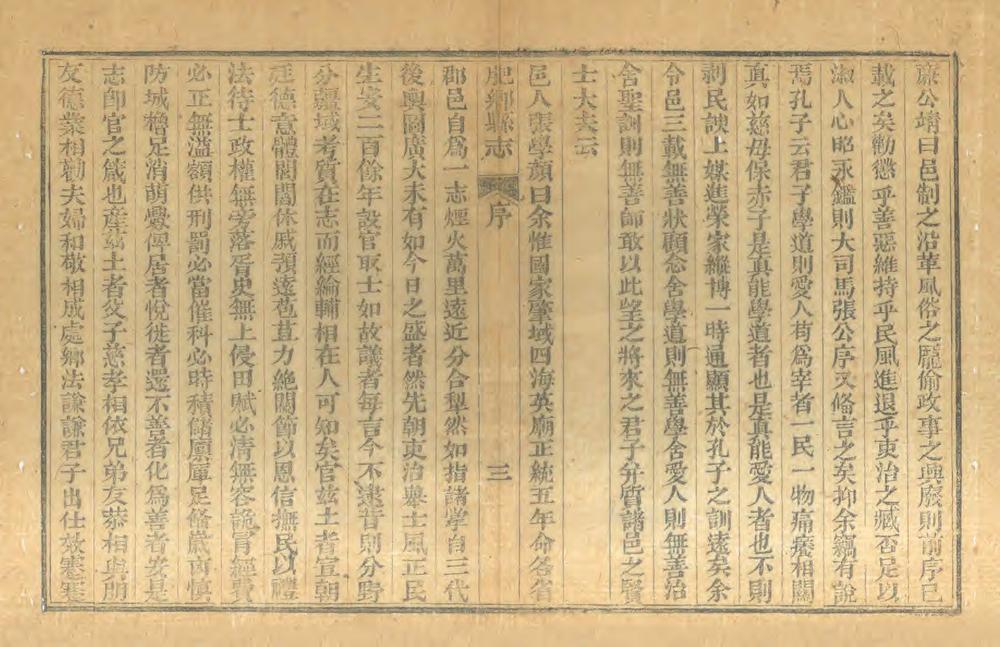 廉公靖曰邑制之沿革風俗之龎偷政事之興廢則前序已
載之矣勸懲乎善惡維持乎民風進退乎吏治之臧否足以
淑人心昭永鑑則大司馬張公序又俻言之矣抑余竊有說
焉孔子云君子學道則愛人苟爲宰者一民一物痛癢相關
真如慈母保赤子是真能學道者也是真能愛人者也不則
剥民諛上媒進榮家縱博一時通顯其於孔子之訓遠矣余
令邑三載無善狀願念舍學道則無善學舍愛人則無善治
舍聖訓則無善師敢以此望之將來之君子并質諸邑之賢
士大夫云
邑人張學顔曰余惟國家肇域四海英廟正統五年命各省
肥鄉縣志 序 三
郡邑自爲一志煙火萬里遠近分合犁然如指諸掌自三代
後輿圖廣大未有如今日之盛者然先朝吏治舉士風正民
生安二百餘年設官取士如故議者每言今不逮昔則分野
分疆域考質在志而經綸輔相在人可知矣官兹土者宣朝
廷德意體閭閻休戚預遠苞苴力絶關節以恩信撫民以禮
法待士政權無旁落胥吏無上侵田賦必清無容詭冐經費
必正無溢額供刑罰必當催科必時積儲廪庫足俻歲內慎
防城櫓足消萌釁俾居者悅徙者還不善者化爲善者安是
志卽官之箴也産兹土者父子慈孝相依兄弟友恭相與朋
友德業相勸夫婦和敬相成處鄉法謙謙君子出仕效蹇蹇